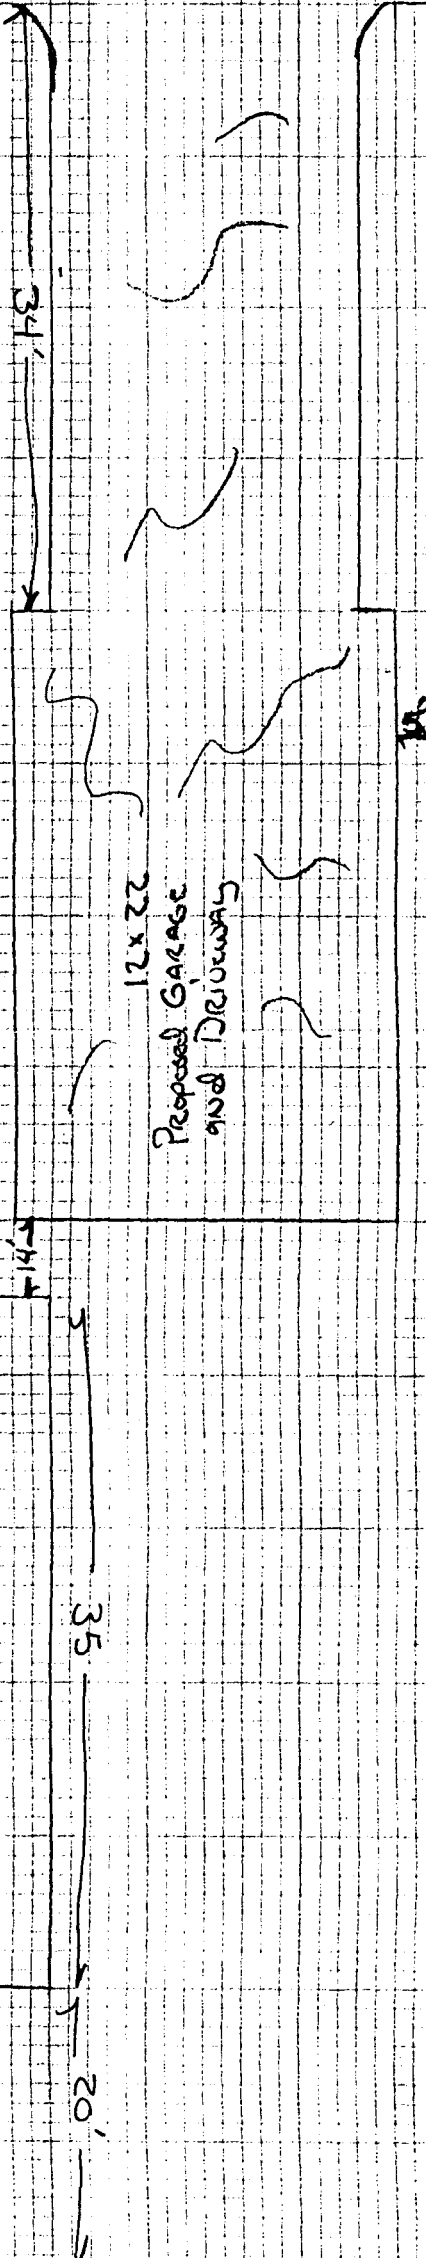 34'
12 x 22
Proposed GARAGE
and DRIVEWAY
14'
35
20'